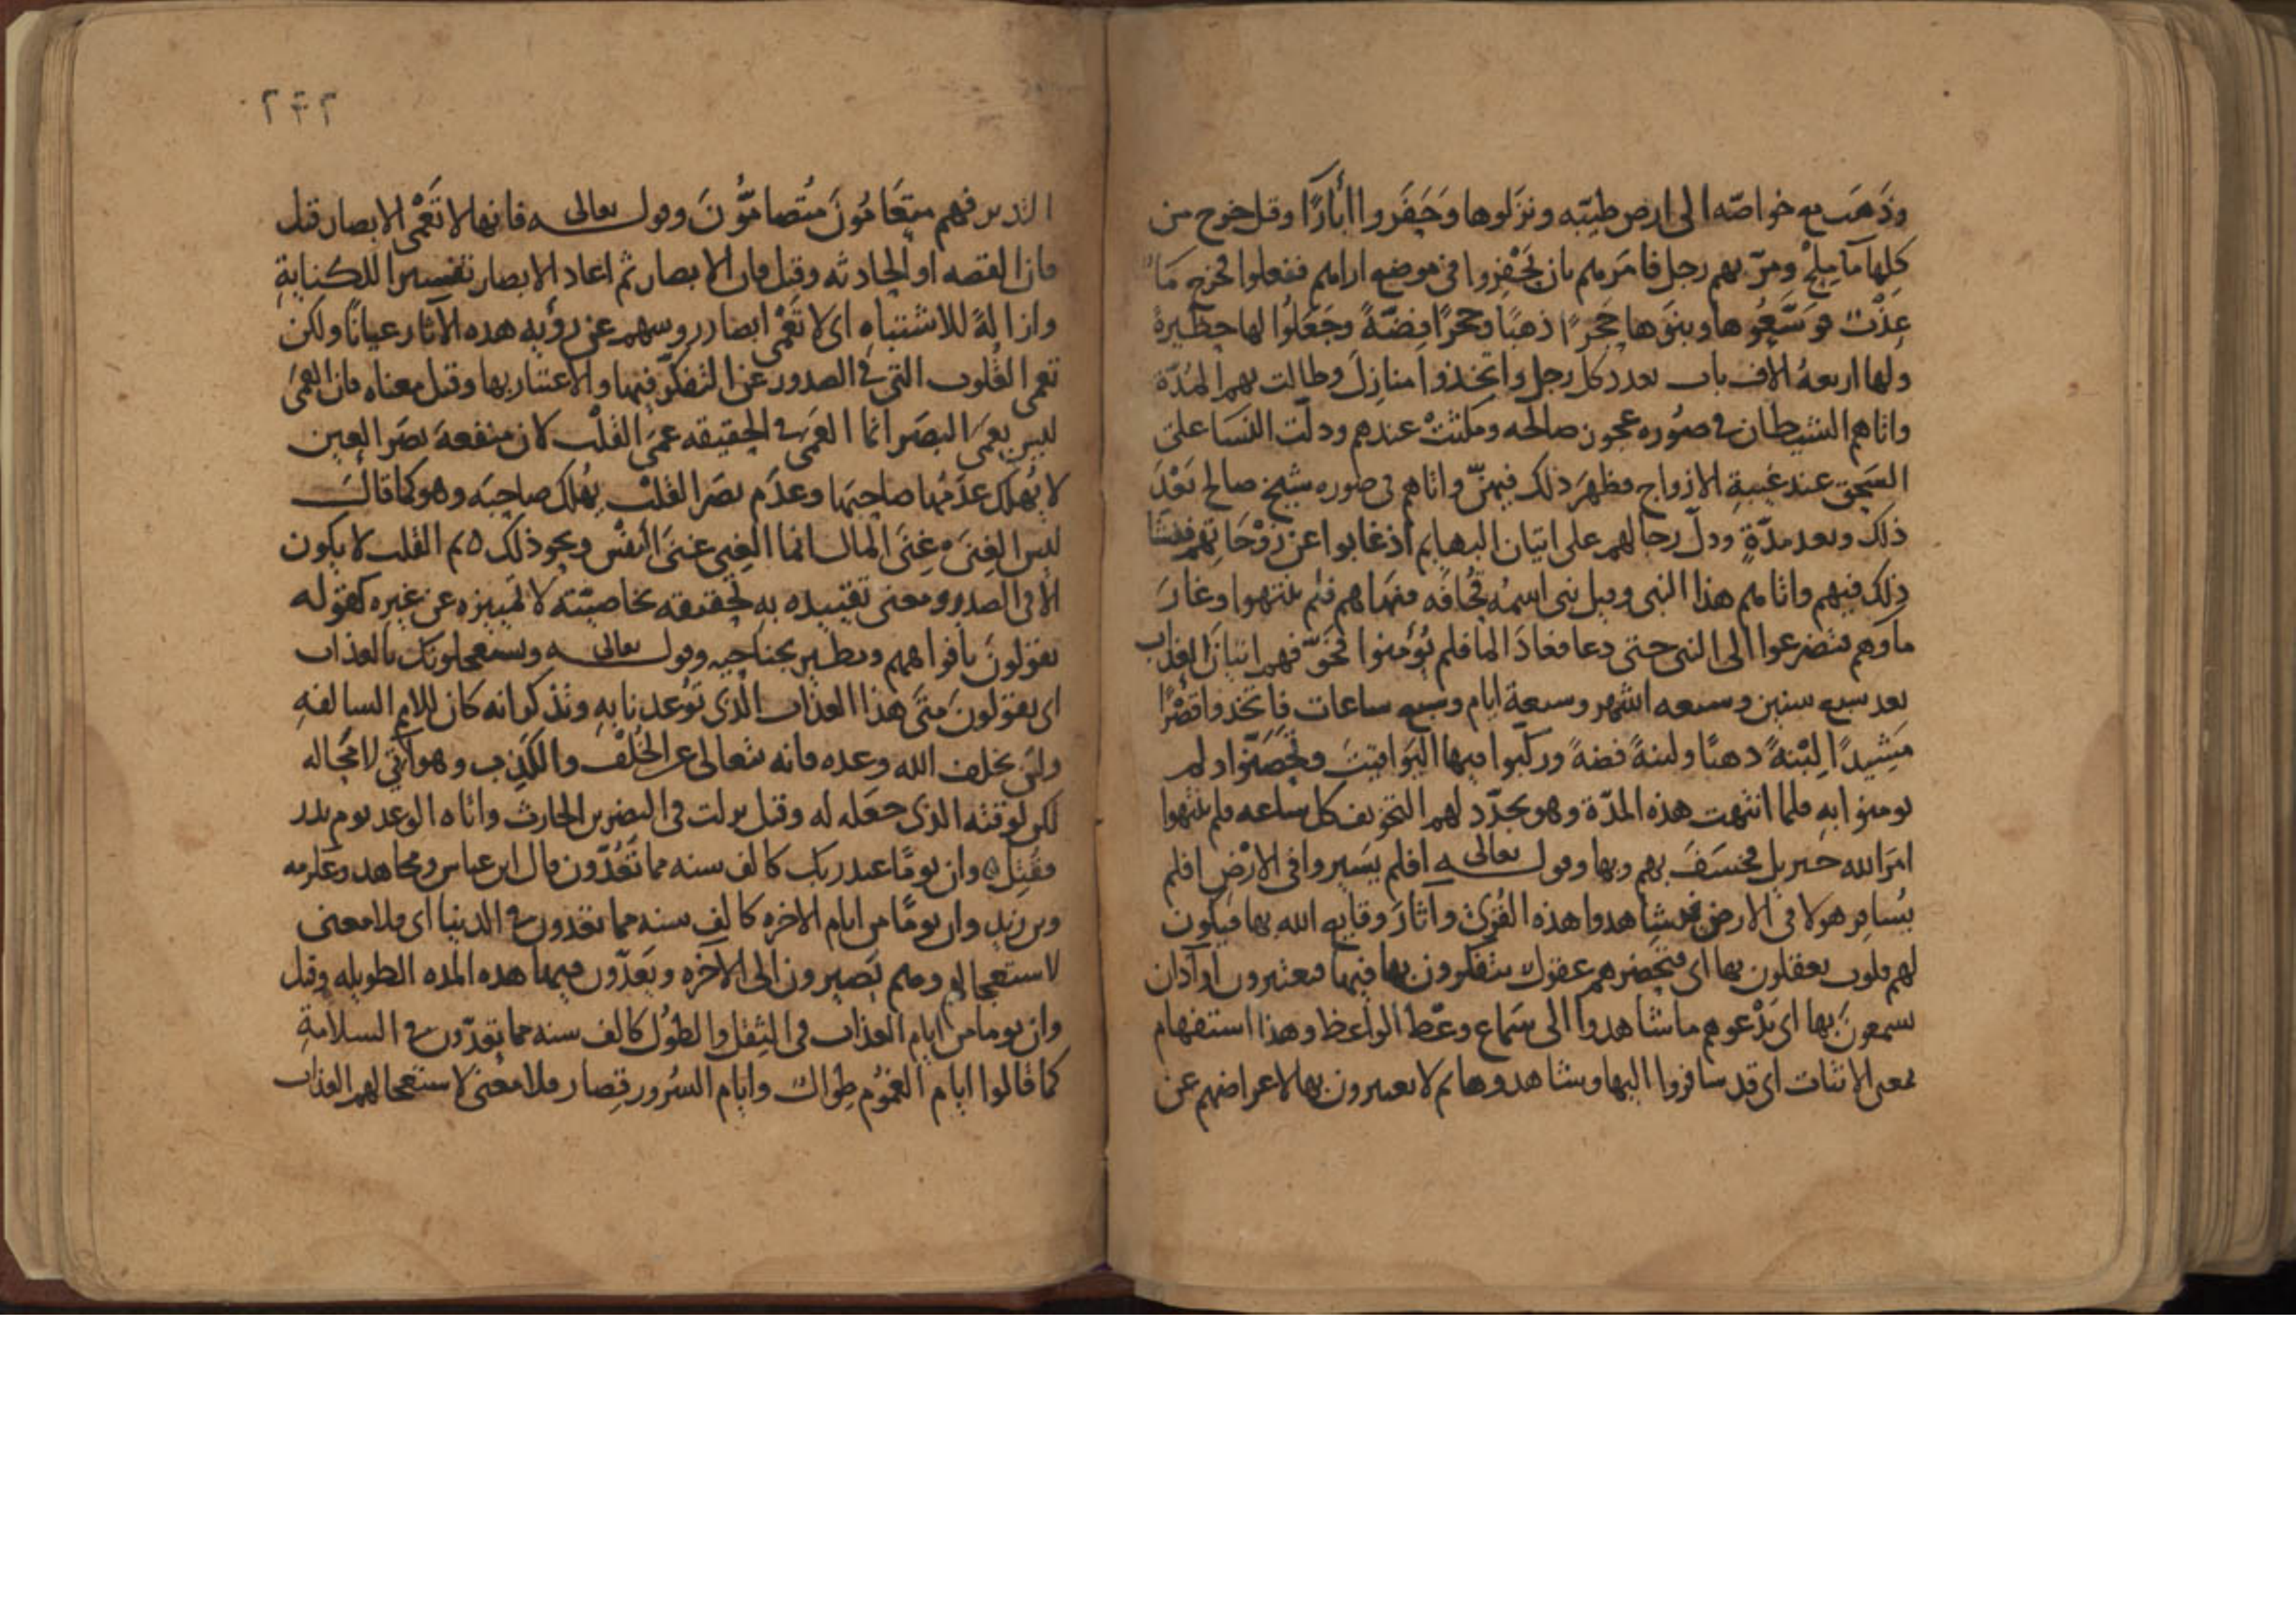 وذهب مع خواصّه الى ارض طيّبه ونزلوها وحفروا أبارًا وقيل خرج من
كلها ما ملح ومرّ بهم رجل فامرهم بان يحفروا في موضع اراهم ففعلوا فخرج ما
عذب فوسّعوها وبنوها حجرًا ذهبًا وحجرًا فضّةً وجعلوا لها حظيرة
ولها اربعة الاف باب بعدد كل رجل واتخذوا منازل وطالت بهم المدّة
واتاهم الشيطان في صوره عجوز صالحه ومكثت عندهم ودلّت النسا على
السحق عند غيبة الازواج فظهر ذلك فيهنّ واتاهم في صوره شيخ صالح بعد
ذلك وبعد مدّةٍ ودلّ رجالهم على اتيان البهايم اذ غابوا عن زوجاتهم ففشا
ذلك فيهم واتاهم هذا النبي وقيل نبي اسمه قحافه فنهاهم فلم ينتهوا وغار
ماوهم فتضرعوا الى النبي حتى دعا فعاد الما فلم يؤمنوا فخوّفهم اتيان العذاب
بعد سبع سنين وسبعه اشهر وسبعة ايام وسبع ساعات فاتخذوا قصرًا
مشيدًا لبنةً ذهبًا ولبنةً فضةً وركّبوا فيها اليواقيت وتحصّنوا ولم
يومنوا به فلما انتهت هذه المدّة وهو يجدّد لهم التخويف كل ساعه فلم ينتهوا
امر الله جبريل فخسف بهم وبها وقول تعالى افلم يسيروا في الارض افلم
يسافر هولا في الارض فيشاهدوا هذه القرى وآثار وقايع الله بها فيكون
لهم قلوب يعقلون بها اى فتحضرهم عقول يتفكرون بها فيها فيعتبرون او آذان
يسمعون بها اى يدعوهم ما شاهدوا الى سماع وعظ الواعظ وهذا استفهام
بمعنى الاثبات اى قد سافروا اليها وشاهدوها ثم لا يعتبرون بها لاعراضهم عن
٢٦٢
التدبر فهم متعامون متصامّون وقول تعالى فانها لا تعمى الابصار قيل
فان القصه او الحادثه وقيل فان الابصار ثم اعاد الابصار تفسيرا للكناية
وازالةً للاشتباه اى لا تعمى ابصار روسهم عن رؤيه هذه الآثار عيانًا ولكن
تعمى القلوب التي في الصدور عن التفكّر فيها والاعتبار بها وقيل معناه فان العمى
ليس بعمى البصر انما العمى في الحقيقه عمى القلب لان منفعة بصر العين
لا يهلك عدمها صاحبها وعدم بصر القلب يهلك صاحبه وهو كما قال
ليس الغنى غنى المال انما الغنى غنى النفس ونحو ذلك ثم القلب لا يكون
الا في الصدر ومعنى تقييده به لتحقيقه بخاصيّته لا لتمييزه عن غيره كقوله
يقولون بافواههم ويطير بجناحيه وقول تعالى ويستعجلونك بالعذاب
اى يقولون متى هذا العذاب الذى توعدنا به وتذكر انه كان للامم السالفة
ولن يخلف الله وعده فانه تعالى عن الخلف والكذب وهو آتي لا محاله
لكن لوقته الذى جعله له وقيل نزلت في النضر بن الحارث واتاه الوعد يوم بدر
فقتل وان يومًا عند ربك كالف سنه مما تعدّون قال ابن عباس ومجاهد وعكرمه
وبن زيد وان يومًا من ايام الاخره كالف سنه مما تعدّون في الدنيا اى فلا معنى
لاستعجالهم وهم يصيرون الى الآخره ويعدّون فيها هذه المده الطويله وقيل
وان يوما من ايام العذاب في الثقل والطول كالف سنه مما تعدّون في السلامة
كما قالوا ايام الغموم طوال وايام السرور قصار فلا معنى لاستعجالهم العذاب